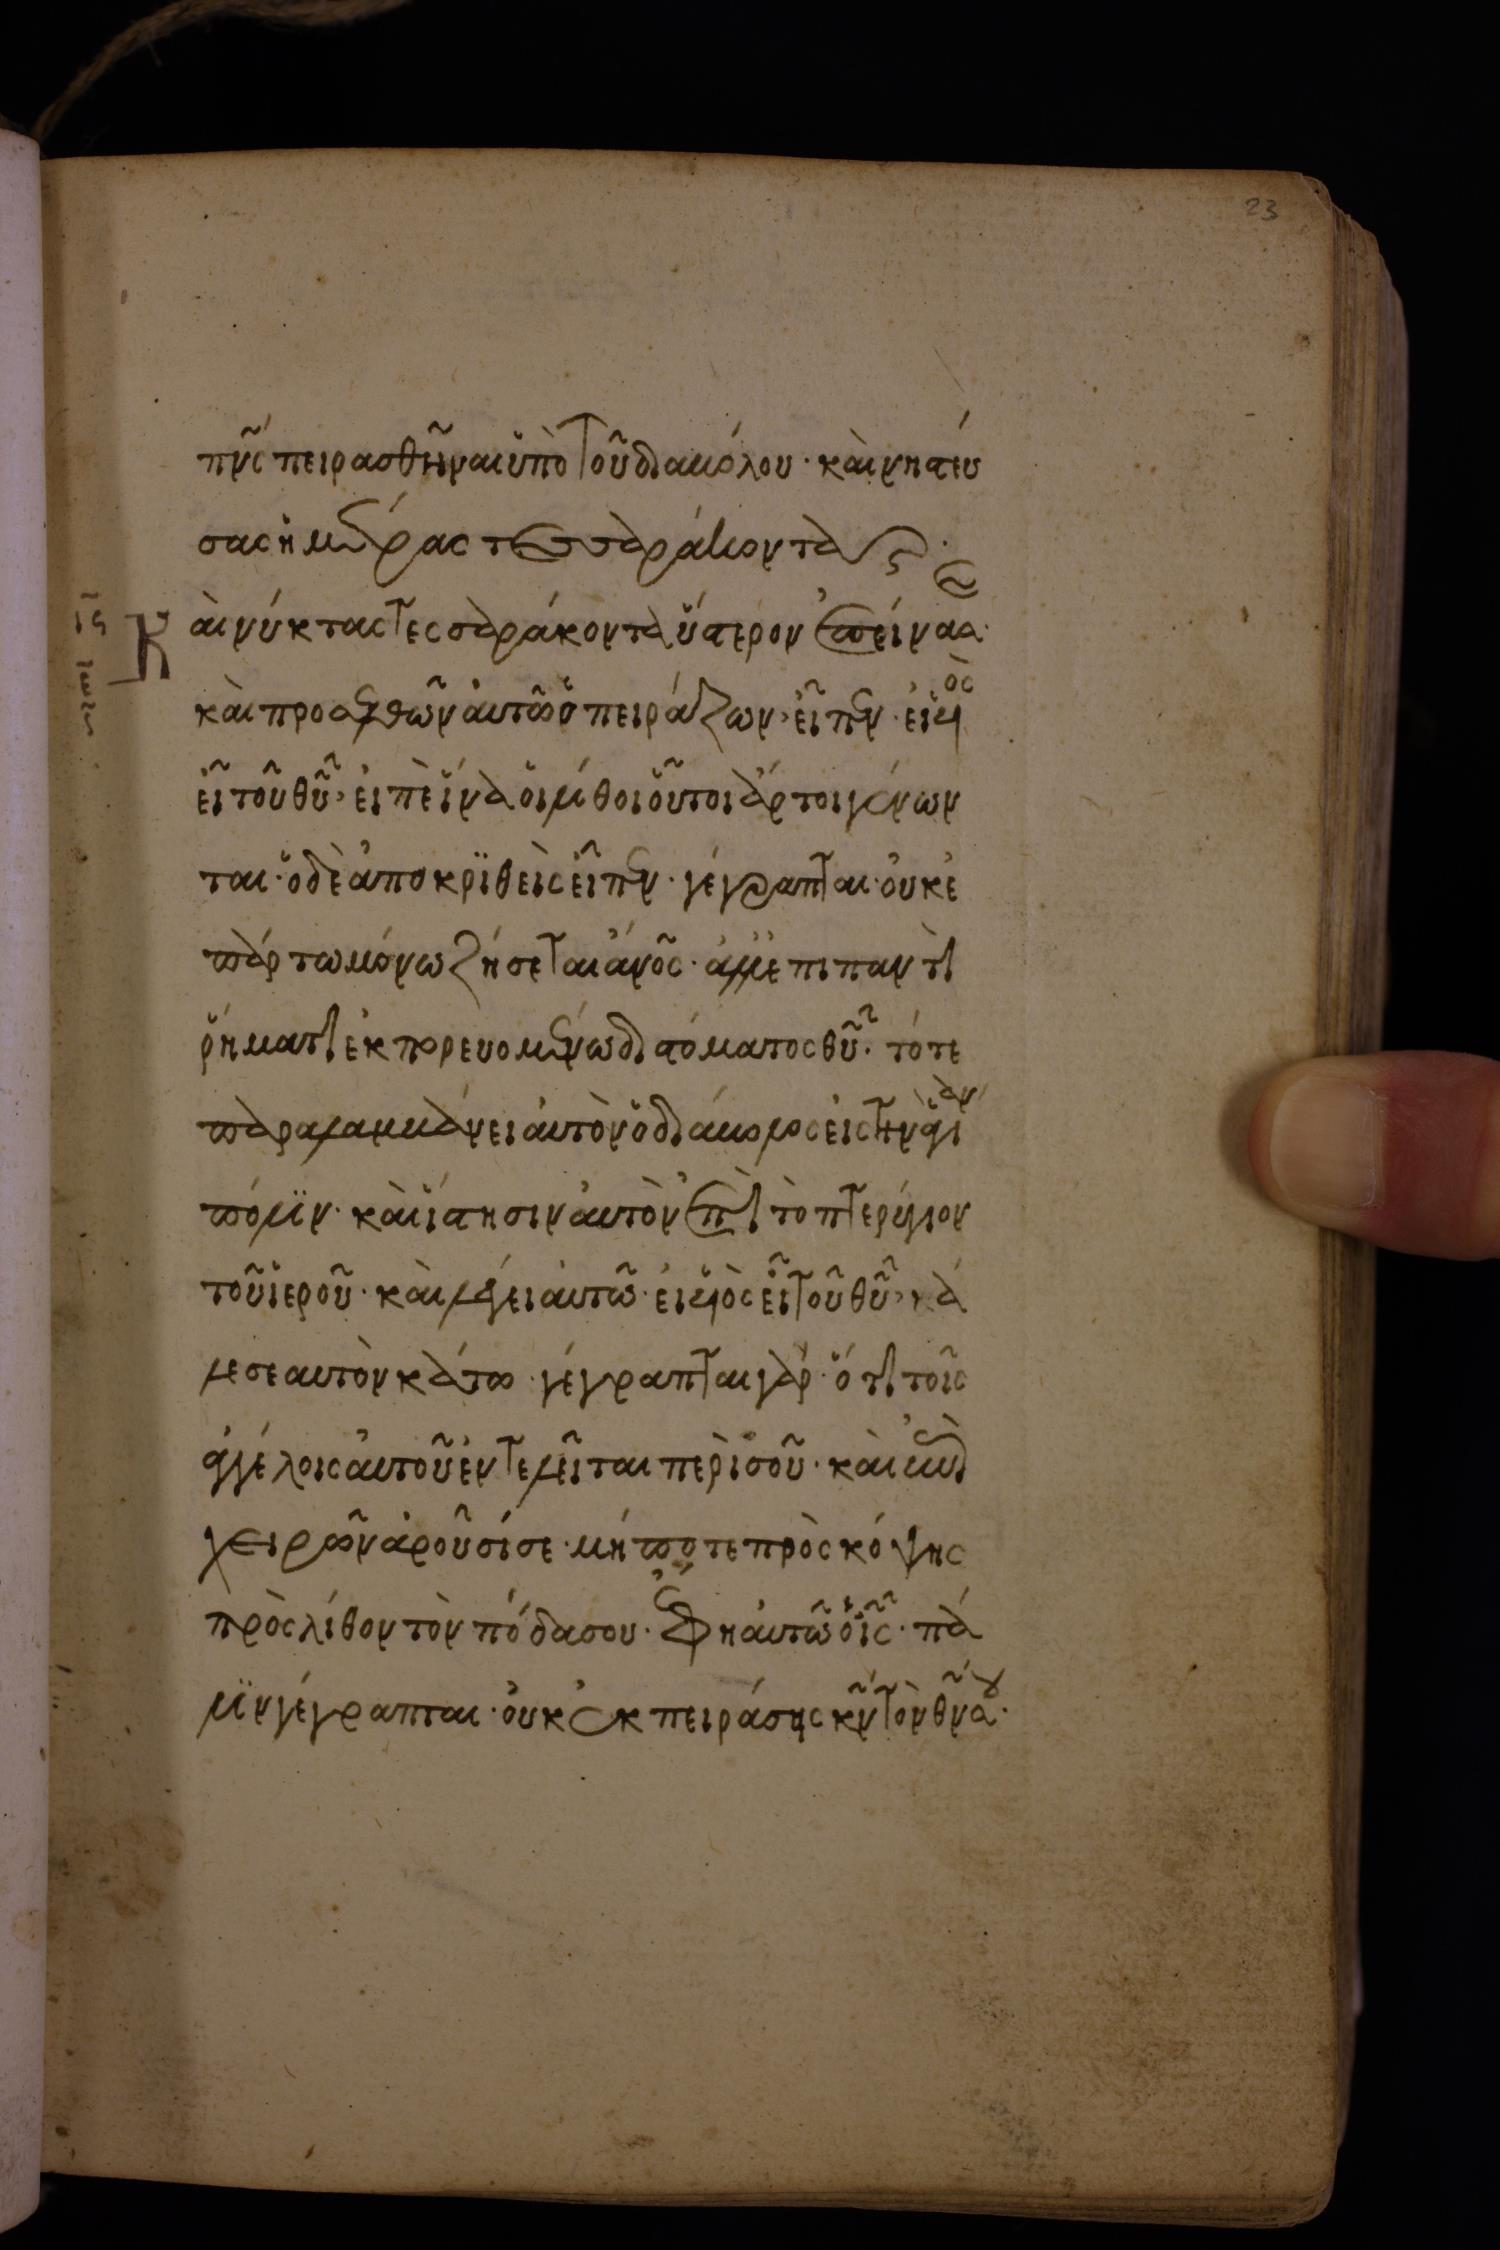 23
πν̅ς πειρασθῆναι ὑπὸ τοῦ διαβόλου · καὶ νηστεύ
σας ἡμέρας τεσσαράκοντα
Κ αὶ νύκτας τεσσαράκοντα ὕστερον ἐπείνασε ·
καὶ προσελθὼν αὐτῶ ὁ πειράζων, εἶπεν · εἰ υἱὸς
εἶ τοῦ θυ̅, εἰπὲ ἵνα οἱ λίθοι οὗτοι ἄρτοι γένων
ται · ὁ δὲ ἀποκριθεὶς εἶπεν · γέγραπται · οὐκ ἐ
π' ἄρτω μόνω ζήσεται ἄνος̅ · ἀλλ' ἐπὶ παντὶ
ῥήματι ἐκπορευομένω διὰ στόματος θυ̅ · τότε
παραλαμβάνει αὐτὸν ὁ διάβολος εἰς τὴν ἁγίαν
πόλιν · καὶ ἵστησιν αὐτὸν ἐπὶ τὸ πτερύγιον
τοῦ ἱεροῦ · καὶ λέγει αὐτῶ · εἰ υἱὸς εἶ τοῦ θυ̅, βά
λε σεαυτὸν κάτω · γέγραπται γάρ · ὅτι τοῖς
ἀγγέλοις αὐτοῦ ἐντελεῖται περὶ σοῦ · καὶ ἐπὶ
χειρῶν ἀροῦσί σε · μήποτε προσκόψης
πρὸς λίθον τὸν πόδα σου · ἔφη αὐτῶ ὁ ις̅ · πά
λιν γέγραπται · οὐκ ἐκπειράσης κν̅ τὸν θν̅ σου ·